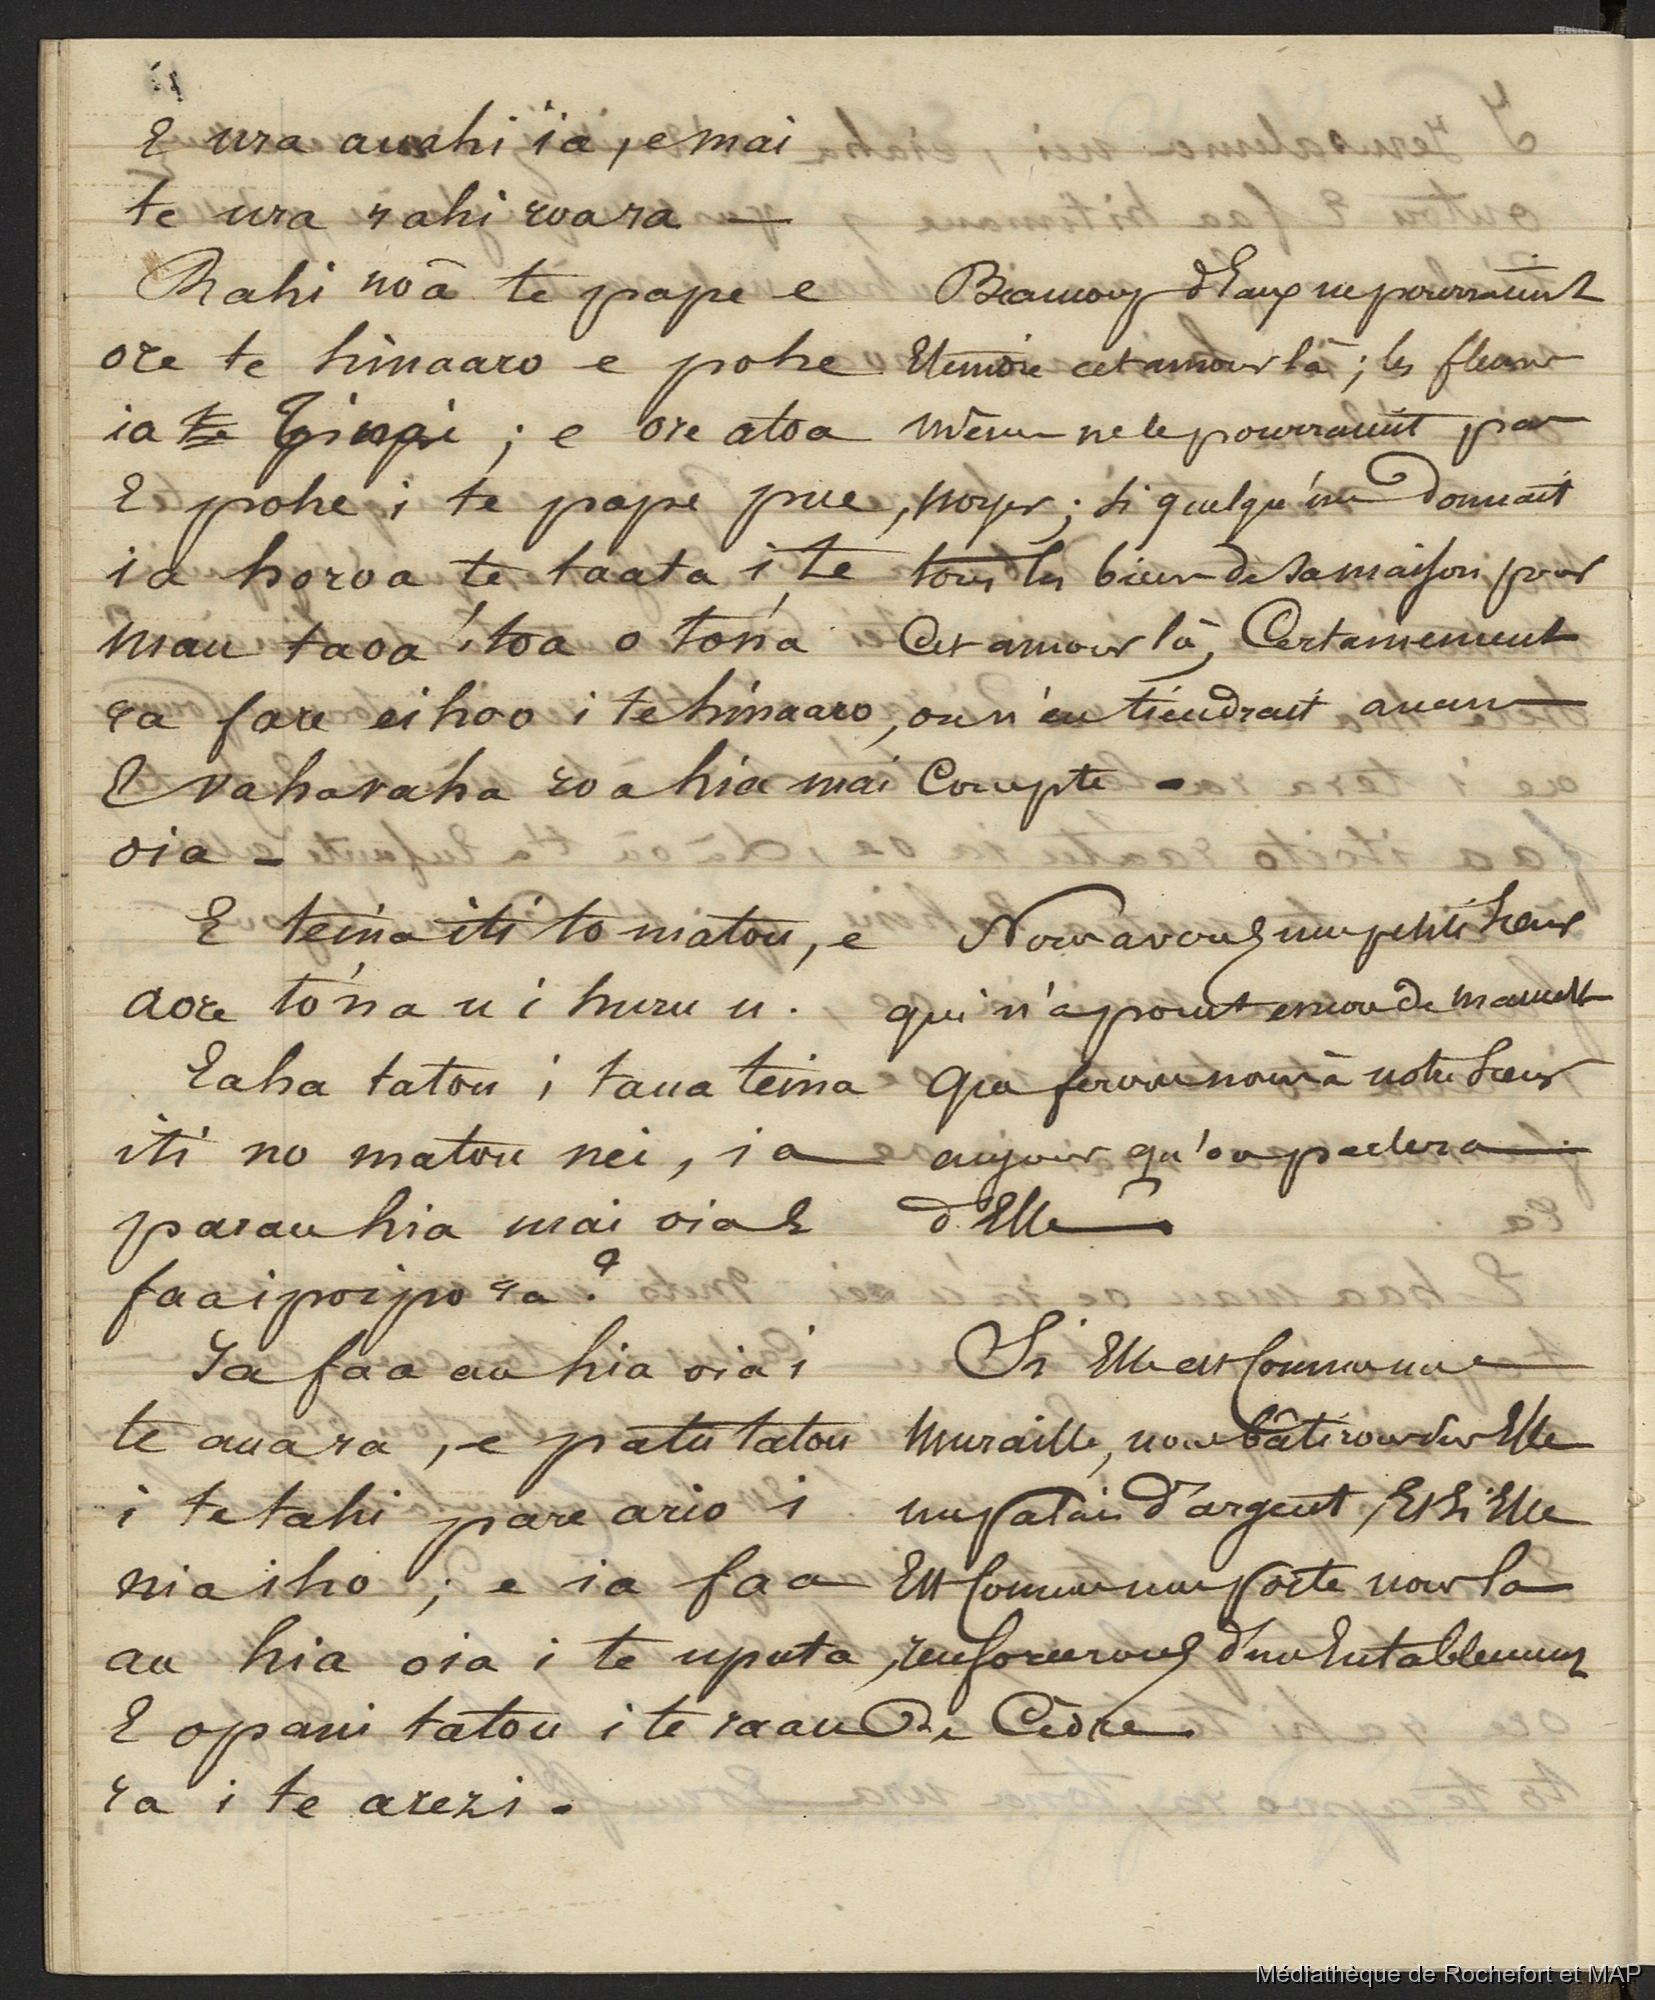 E ura auahi ïa, e mai
te ura rahi roa ra —
Rahi noâ te pape e
ore te hinaaro e pohe
ia te Tinai ; e ore atoa
E pohe i te pape pue,
ia horoa te taata i te
mau taoa 'toa o tona
ra fare ei hoo i te hinaaro,
E vahavaha roa hia mai
oia -
E teina iti to matou, e
aore to'na u i huru u.
Eaha tatou i taua teina
iti no matou nei, ia
parau hia mai oia E
faaipoipo ra ?
Ia faa au hia oia i
te aua ra, e patu tatou
i te tahi pare ario i
nia iho ; e ia faa
au hia oia i te uputa,
E opani tatou i te raau
ra i te arezi -
Beaucoup d'Eaux ne pourraient
Eteindre cet amour là ; les fleuves
même ne le pourraient pas
noyer ; si quelqu'un donnait
tous les biens de sa maison pour
Cet amour là, Certainement
on n'en tiendrait aucun
Compte -
Nous avons une petite Soeur
qui n'a point encore de mamelle
Que ferons nous à notre Soeur
au jour qu'on parlera
d'Elle
Si Elle est Comme une
Muraille, nous bâtirons sur Elle
un palais d'argent, Et si Elle
Est Comme une porte nous la
renforcerons d'un Entablement
De Cèdre.
Médiathèque de Rochefort et MAP